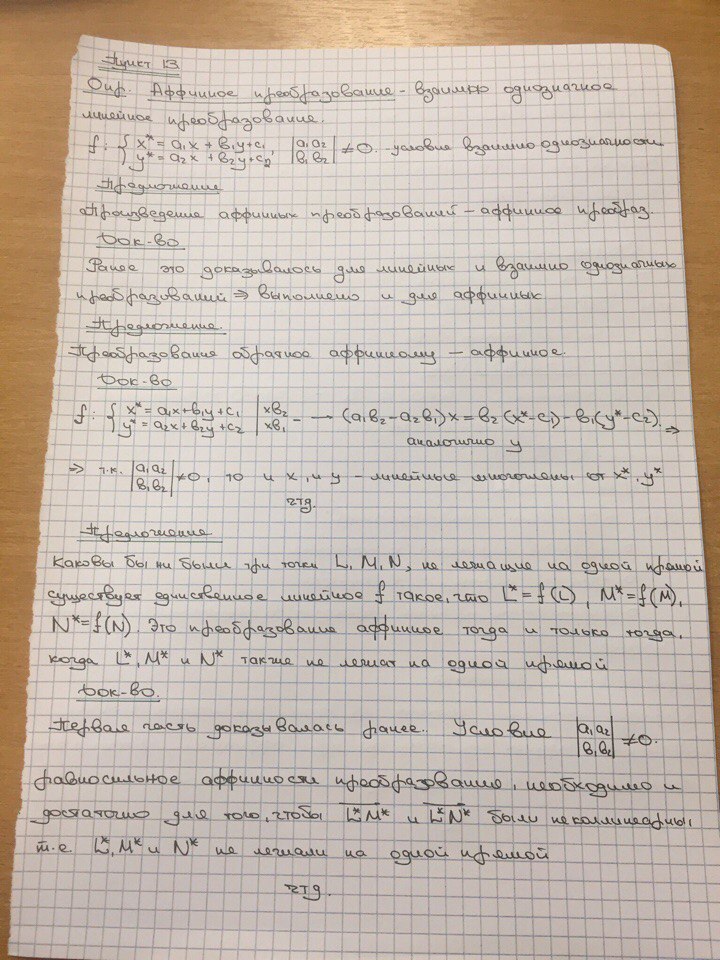 Пункт 13
Опр. Аффинное преобразование - взаимно однозначное
линейное преобразование.
f: { x* = a₁x + b₁y + c₁, y* = a₂x + b₂y + c₂, |a₁ a₂ b₁ b₂| ≠ 0. - условие взаимно однозначности
Предложение
Произведение аффинных преобразований - аффинное преобраз.
Док-во
Ранее это доказывалось для линейных и взаимно однозначных
преобразований ⇒ выполнено и для аффинных
Предложение.
Преобразование обратное аффинному - аффинное.
Док-во
f: { x* = a₁x + b₁y + c₁ | xb₂ y* = a₂x + b₂y + c₂ | xb₁ - → (a₁b₂ - a₂b₁)x = b₂(x* - c₁) - b₁(y* - c₂). ⇒
аналогично y
⇒ т.к. |a₁ a₂ b₁ b₂| ≠ 0, то и x, и y - линейные многочлены от x*, y*
чтд.
Предложение
Каковы бы ни были три точки L, M, N, не лежащие на одной прямой
существует единственное линейное f такое, что L* = f(L), M* = f(M),
N* = f(N). Это преобразование аффинное тогда и только тогда,
когда L*, M* и N* также не лежат на одной прямой
Док-во.
Первая часть доказывалась ранее. Условие |a₁ a₂ b₁ b₂| ≠ 0.
равносильное аффинности преобразования, необходимо и
достаточно для того, чтобы L*M* и L*N* были неколлинеарны
т.е. L*, M* и N* не лежали на одной прямой
чтд.